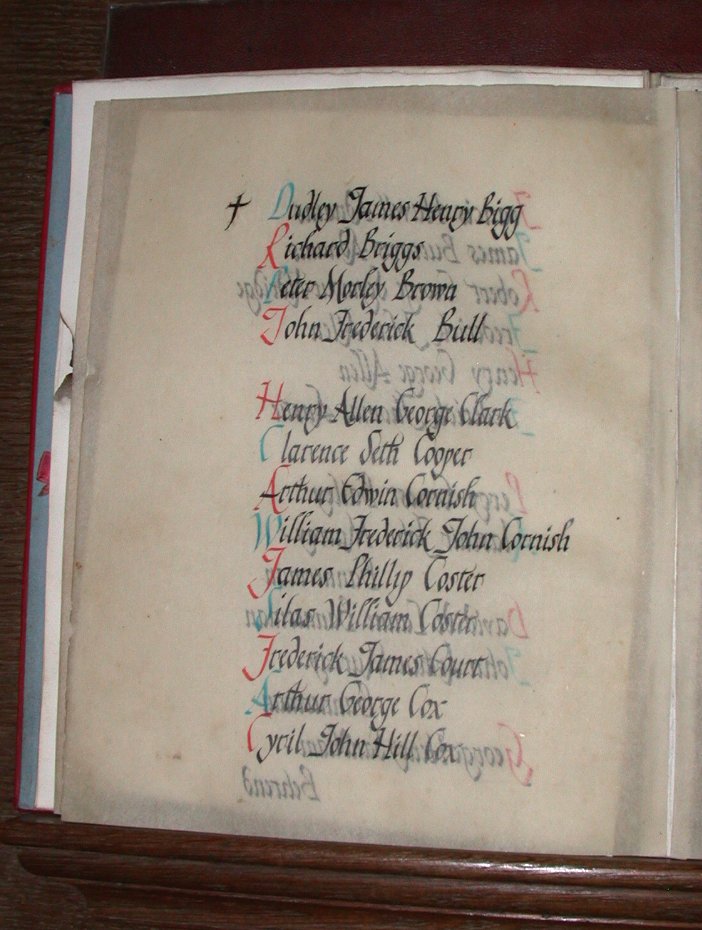 † Dudley James Henry Bigg
Richard Briggs
Peter Morley Brown
John Frederick Bull
Henry Allen George Clark
Clarence Seth Cooper
Arthur Edwin Cornish
William Frederick John Cornish
James Phillip Coster
Silas William Coster
Frederick James Court
Arthur George Cox
Cyril John Hill Cox